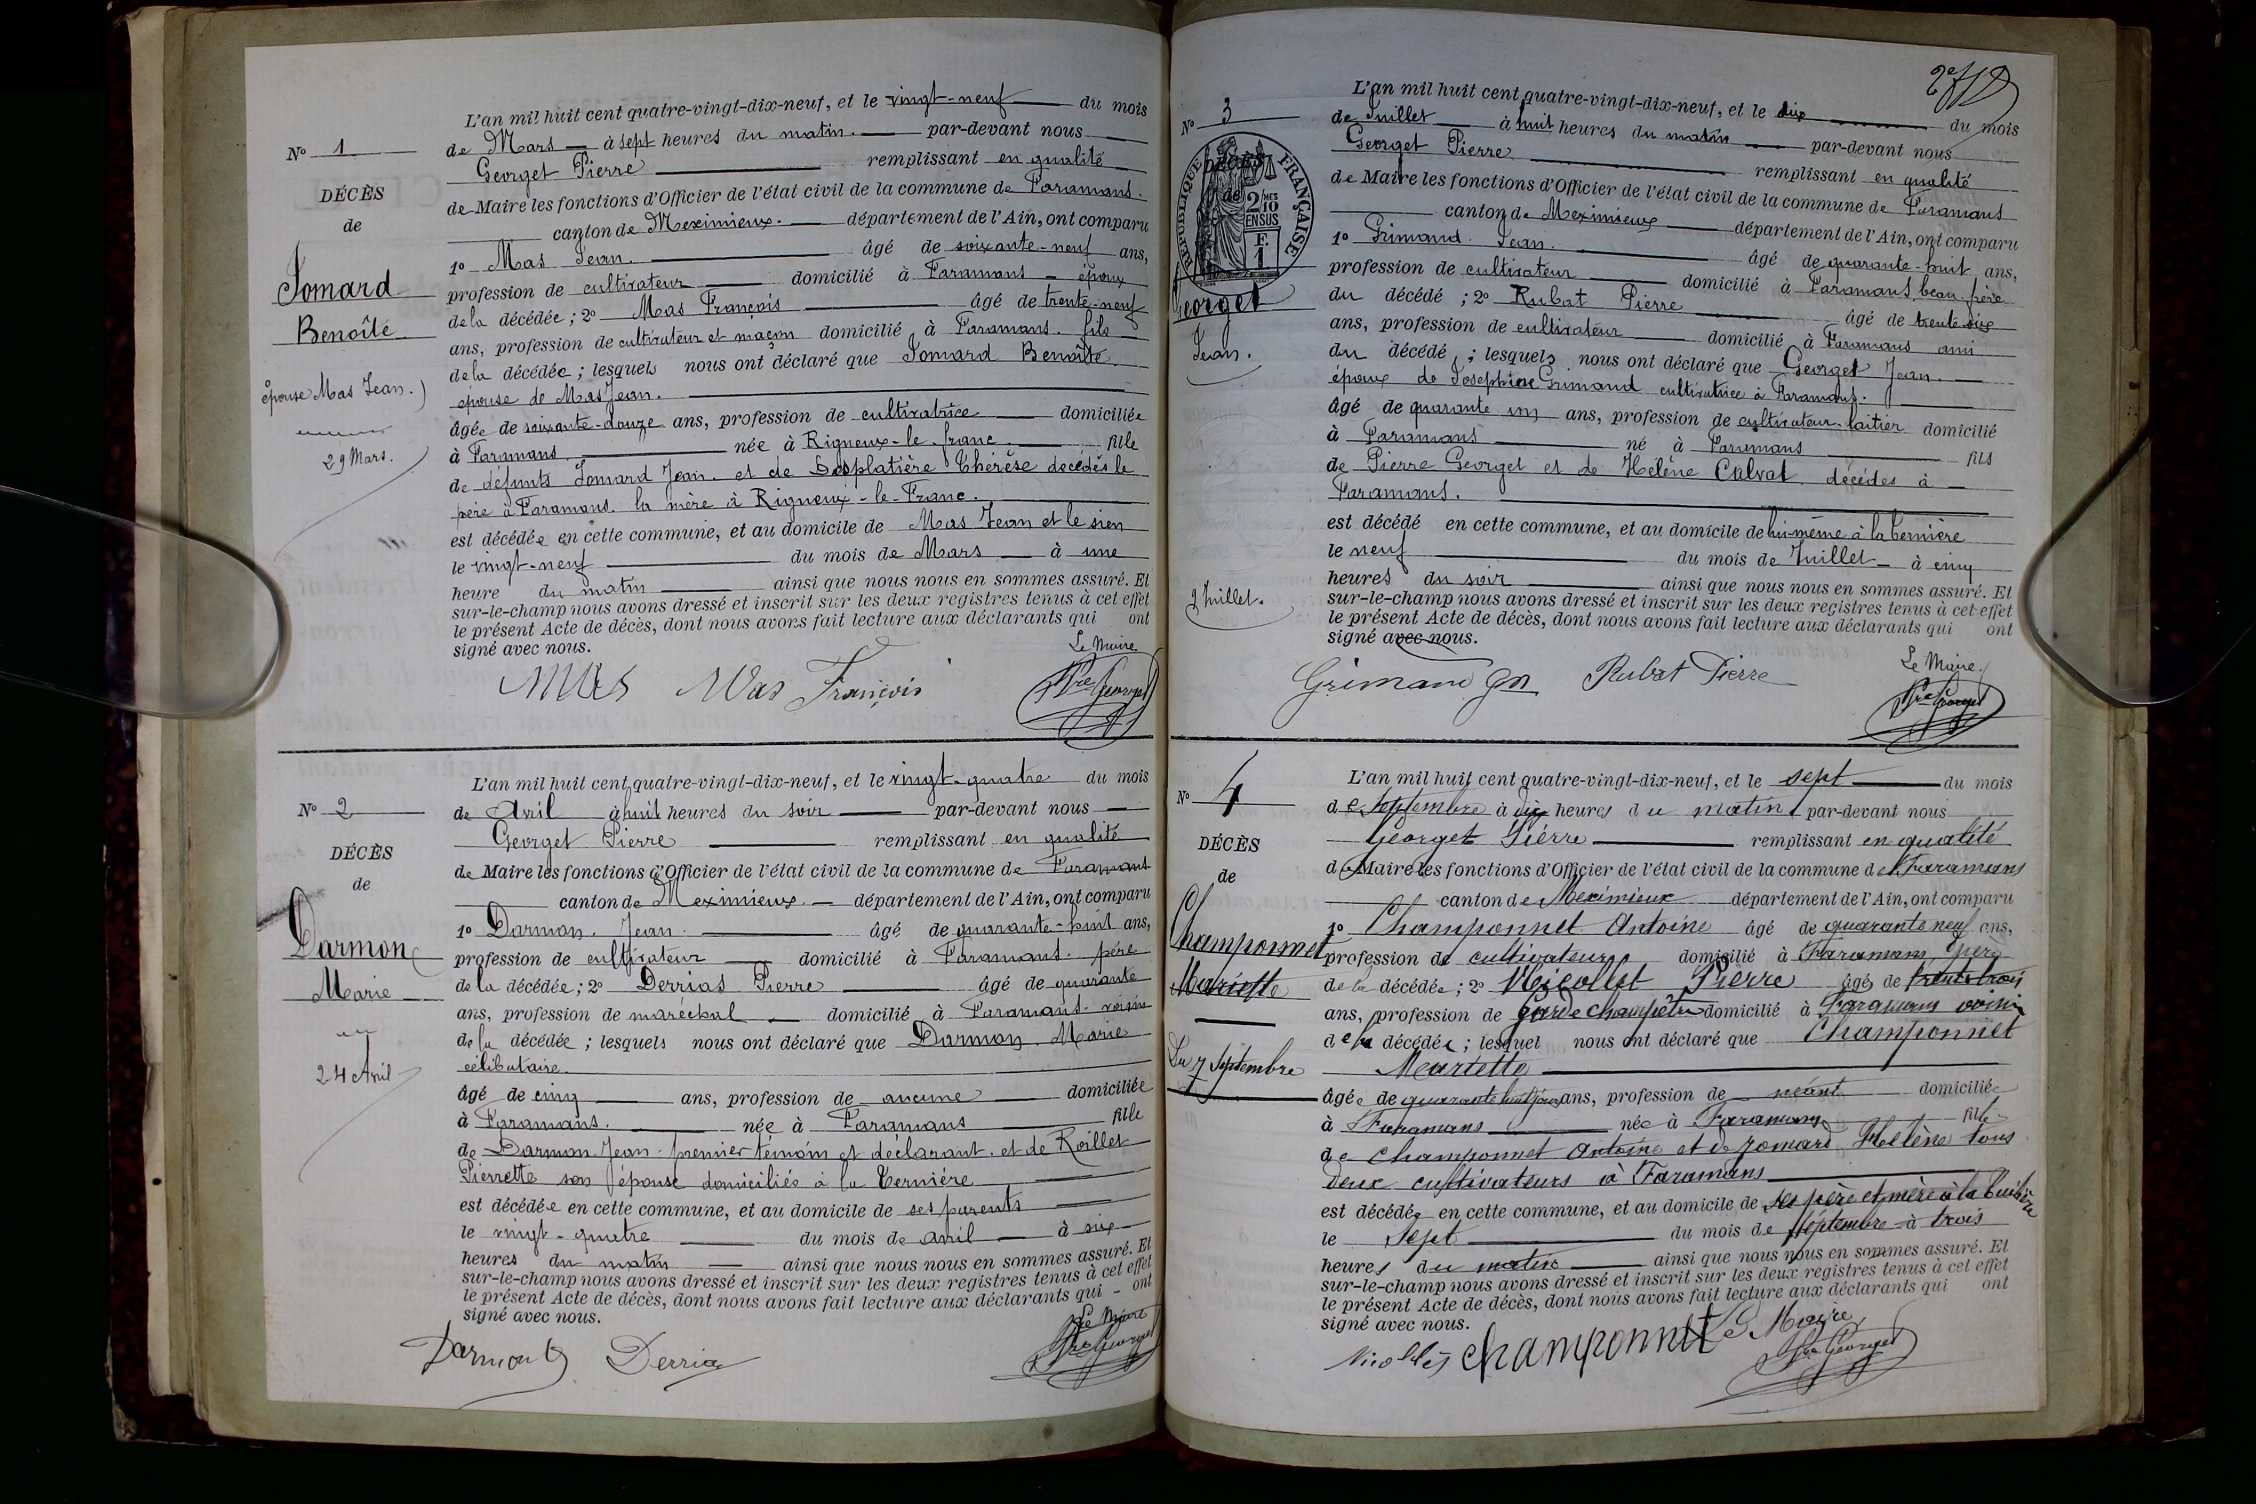 L'an mil huit cent quatre-vingt-dix-neuf, et le vingt-neuf du mois
N° 1
de Mars à sept heures du matin. par-devant nous
Georget Pierre remplissant en qualité
DÉCÈS
de Maire les fonctions d'Officier de l'état civil de la commune de Faramans.
de
canton de Meximieux. département de l'Ain, ont comparu
1° Mas Jean. âgé de soixante-neuf ans,
Jomard
profession de cultivateur domicilié à Faramans époux
Benoîte
de la décédée ; 2° Mas François âgé de trente-neuf
ans, profession de cultivateur et maçon domicilié à Faramans. fils
de la décédée ; lesquels nous ont déclaré que Jomard Benoîte
épouse Mas Jean.
épouse de Mas Jean.
âgée de soixante-douze ans, profession de cultivatrice domiciliée
29 Mars.
à Faramans née à Rigneux-le-franc fille
de défunts Jomard Jean. et de Desplatière Thérèse décédés le
père à Faramans. la mère à Rigneux-le-Franc.
est décédée en cette commune, et au domicile de Mas Jean et le sien
le vingt-neuf du mois de Mars à une
heure du matin ainsi que nous nous en sommes assuré. Et
sur-le-champ nous avons dressé et inscrit sur les deux registres tenus à cet effet
le présent Acte de décès, dont nous avons fait lecture aux déclarants qui ont
signé avec nous.
Le Maire
MAS Mas François Pre Georget
L'an mil huit cent quatre-vingt-dix-neuf, et le vingt-quatre du mois
N° 2
de Avril à huit heures du soir par-devant nous
Georget Pierre remplissant en qualité
DÉCÈS
de Maire les fonctions d'Officier de l'état civil de la commune de Faramans
de
canton de Meximieux. département de l'Ain, ont comparu
1° Darmon. Jean. âgé de quarante-huit ans,
Darmon
profession de cultivateur domicilié à Faramans. père
Marie
de la décédée ; 2° Derrias Pierre âgé de quarante
ans, profession de maréchal domicilié à Faramans. voisin
de la décédée ; lesquels nous ont déclaré que Darmon. Marie
célibataire.
24 Avril
âgé de cinq ans, profession de aucune domiciliée
à Faramans. née à Faramans fille
de Darmon Jean premier témoin et déclarant. et de Roillet
Pierrette son épouse domiciliés à la Ternière
est décédée en cette commune, et au domicile de ses parents
le vingt-quatre du mois de avril à six
heures du matin ainsi que nous nous en sommes assuré. Et
sur-le-champ nous avons dressé et inscrit sur les deux registres tenus à cet effet
le présent Acte de décès, dont nous avons fait lecture aux déclarants qui ont
signé avec nous.
Le Maire
Darmon Derrias Pre Georget
L'an mil huit cent quatre-vingt-dix-neuf, et le dix du mois
N° 3
de Juillet à huit heures du matin par-devant nous
Georget Pierre remplissant en qualité
RÉPUBLIQUE FRANÇAISE
2/10 EN SUS
F. 1
DÉCÈS
de
de Maire les fonctions d'Officier de l'état civil de la commune de Faramans
canton de Meximieux département de l'Ain, ont comparu
1° Grimand. Jean. âgé de quarante-huit ans,
profession de cultivateur domicilié à Faramans, beau frère
Georget
Jean.
du décédé ; 2° Rubat Pierre âgé de trente six
ans, profession de cultivateur domicilié à Faramans ami
du décédé ; lesquels nous ont déclaré que Georget Jean.
époux de Joséphine Grimand cultivatrice à Faramans.
âgé de quarante un ans, profession de cultivateur-laitier domicilié
à Faramans né à Faramans fils
de Pierre Georget et de Hélène Calvat décédés à
Faramans.
est décédé en cette commune, et au domicile de lui-même à la Ternière
le neuf du mois de Juillet à cinq
9 Juillet.
heures du soir ainsi que nous nous en sommes assuré. Et
sur-le-champ nous avons dressé et inscrit sur les deux registres tenus à cet effet
le présent Acte de décès, dont nous avons fait lecture aux déclarants qui ont
signé avec nous.
Le Maire
Grimand Rubat Pierre Pre Georget
L'an mil huit cent quatre-vingt-dix-neuf, et le sept du mois
N° 4
de Septembre à dix heures du matin par-devant nous
Georget Pierre remplissant en qualité
DÉCÈS
de Maire les fonctions d'Officier de l'état civil de la commune de Faramans
de
canton de Meximieux département de l'Ain, ont comparu
1° Champonnet Antoine âgé de quarante neuf ans,
Champonnet
profession de cultivateur domicilié à Faramans, père
Mariette
de la décédée ; 2° Nicollet Pierre âgé de trente trois
ans, profession de garde champêtre domicilié à Faramans voisin
de la décédée ; lesquel nous ont déclaré que Champonnet
Du 7 Septembre
Mariette
âgée de quarante huit jours ans, profession de néant domiciliée
à Faramans née à Faramans fille
de Champonnet Antoine et de Jomard Hélène tous
deux cultivateurs à Faramans
est décédée en cette commune, et au domicile de ses père et mère
le Sept du mois de Septembre à trois
heures du matin ainsi que nous nous en sommes assuré. Et
sur-le-champ nous avons dressé et inscrit sur les deux registres tenus à cet effet
le présent Acte de décès, dont nous avons fait lecture aux déclarants qui ont
signé avec nous.
Le Maire
Nicollet Champonnet Pre Georget